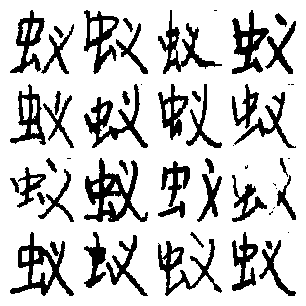 蚁蚁蚁蚁
蚁蚁蚁蚁
蚁蚁蚁蚁
蚁蚁蚁蚁